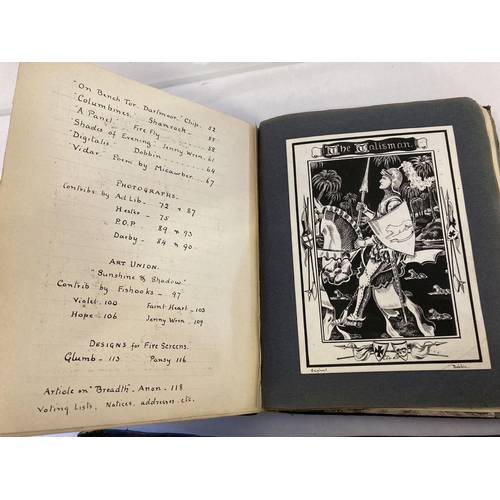 "On Bench Tor. Dartmoor." Chips. 52
"Columbines. Shamrock 55
"A Panel. Fire fly 58
"Shades of Evening. Jenny Wren. 61
"Digitalis. Dobbin 64
"Vidar. Poem by Micawber. 67
PHOTOGRAPHS.
Contribs: by Ad Lib - 72 & 87
Hester - 75
P.O.P - 89 & 93
Darby - 84 & 90
ART UNION.
"Sunshine & Shadow."
Contrib by Fishooks - 97
Violet - 100 Faint Heart - 103
Hope - 106 Jenny Wren - 109
DESIGNS for FIRE SCREENS.
Glumb - 113 Pansy 116
Article on "Breadth". Anon. 118
Voting Lists, Notices, addresses. etc.
The Talisman.
Dobbin